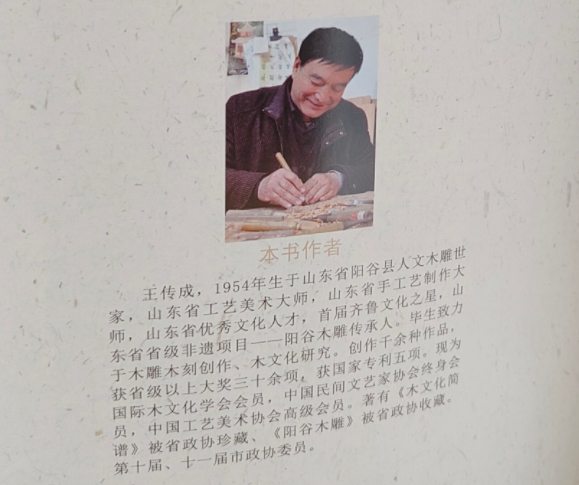 本书作者
王传成，1954年生于山东省阳谷县人文木雕世
家，山东省工艺美术大师，山东省手工艺制作大
师，山东省优秀文化人才，首届齐鲁文化之星，山
东省省级非遗项目——阳谷木雕传承人。毕生致力
于木雕木刻创作、木文化研究。创作千余种作品，
获省级以上大奖三十余项，获国家专利五项。现为
国际木文化学会会员，中国民间文艺家协会终身会
员，中国工艺美术协会高级会员。著有《木文化简
谱》被省政协珍藏、《阳谷木雕》被省政协收藏。
第十届、十一届市政协委员。